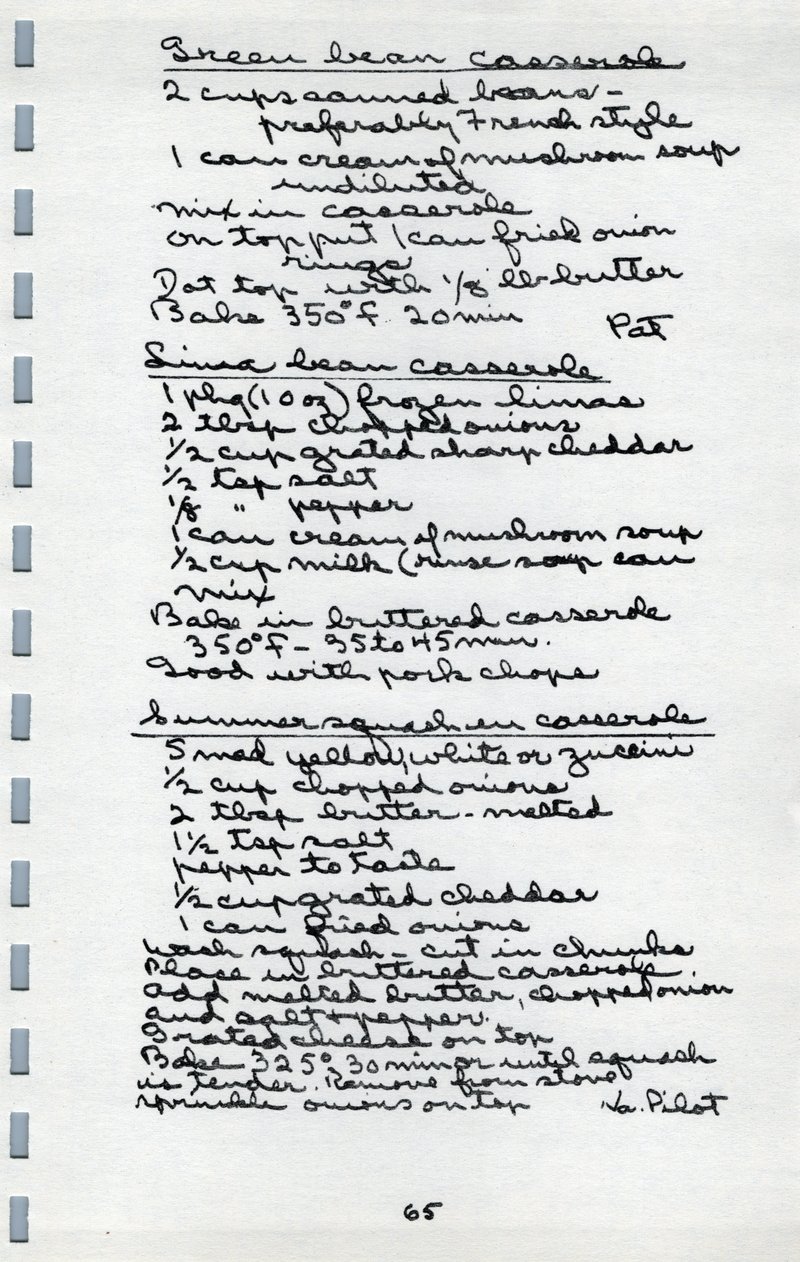 Green bean casserole
2 cups canned beans -
preferably French style
1 can cream of mushroom soup
undiluted
mix in casserole
on top put 1 can fried onion
rings
Dot top with 1/8 lb butter
Bake 350°F 20 min
Pat
Lima bean casserole
1 pkg (10 oz) frozen limas
2 tbsp chopped onions
1/2 cup grated sharp cheddar
1/2 tsp salt
1/8 " pepper
1 can cream of mushroom soup
1/2 cup milk (rinse soup can
mix
Bake in buttered casserole
350°F - 35 to 45 min.
Good with pork chops
Summer squash en casserole
5 med yellow, white or zuccini
1/2 cup chopped onions
2 tbsp butter - melted
1 1/2 tsp salt
pepper to taste
1/2 cup grated cheddar
1 can fried onions
Wash squash - cut in chunks
Place in buttered casserole.
Add melted butter, chopped onion
and salt + pepper.
Grated cheese on top
Bake 325° 30 min or until squash
is tender. Remove from stove
sprinkle onions on top
Va. Pilot
65